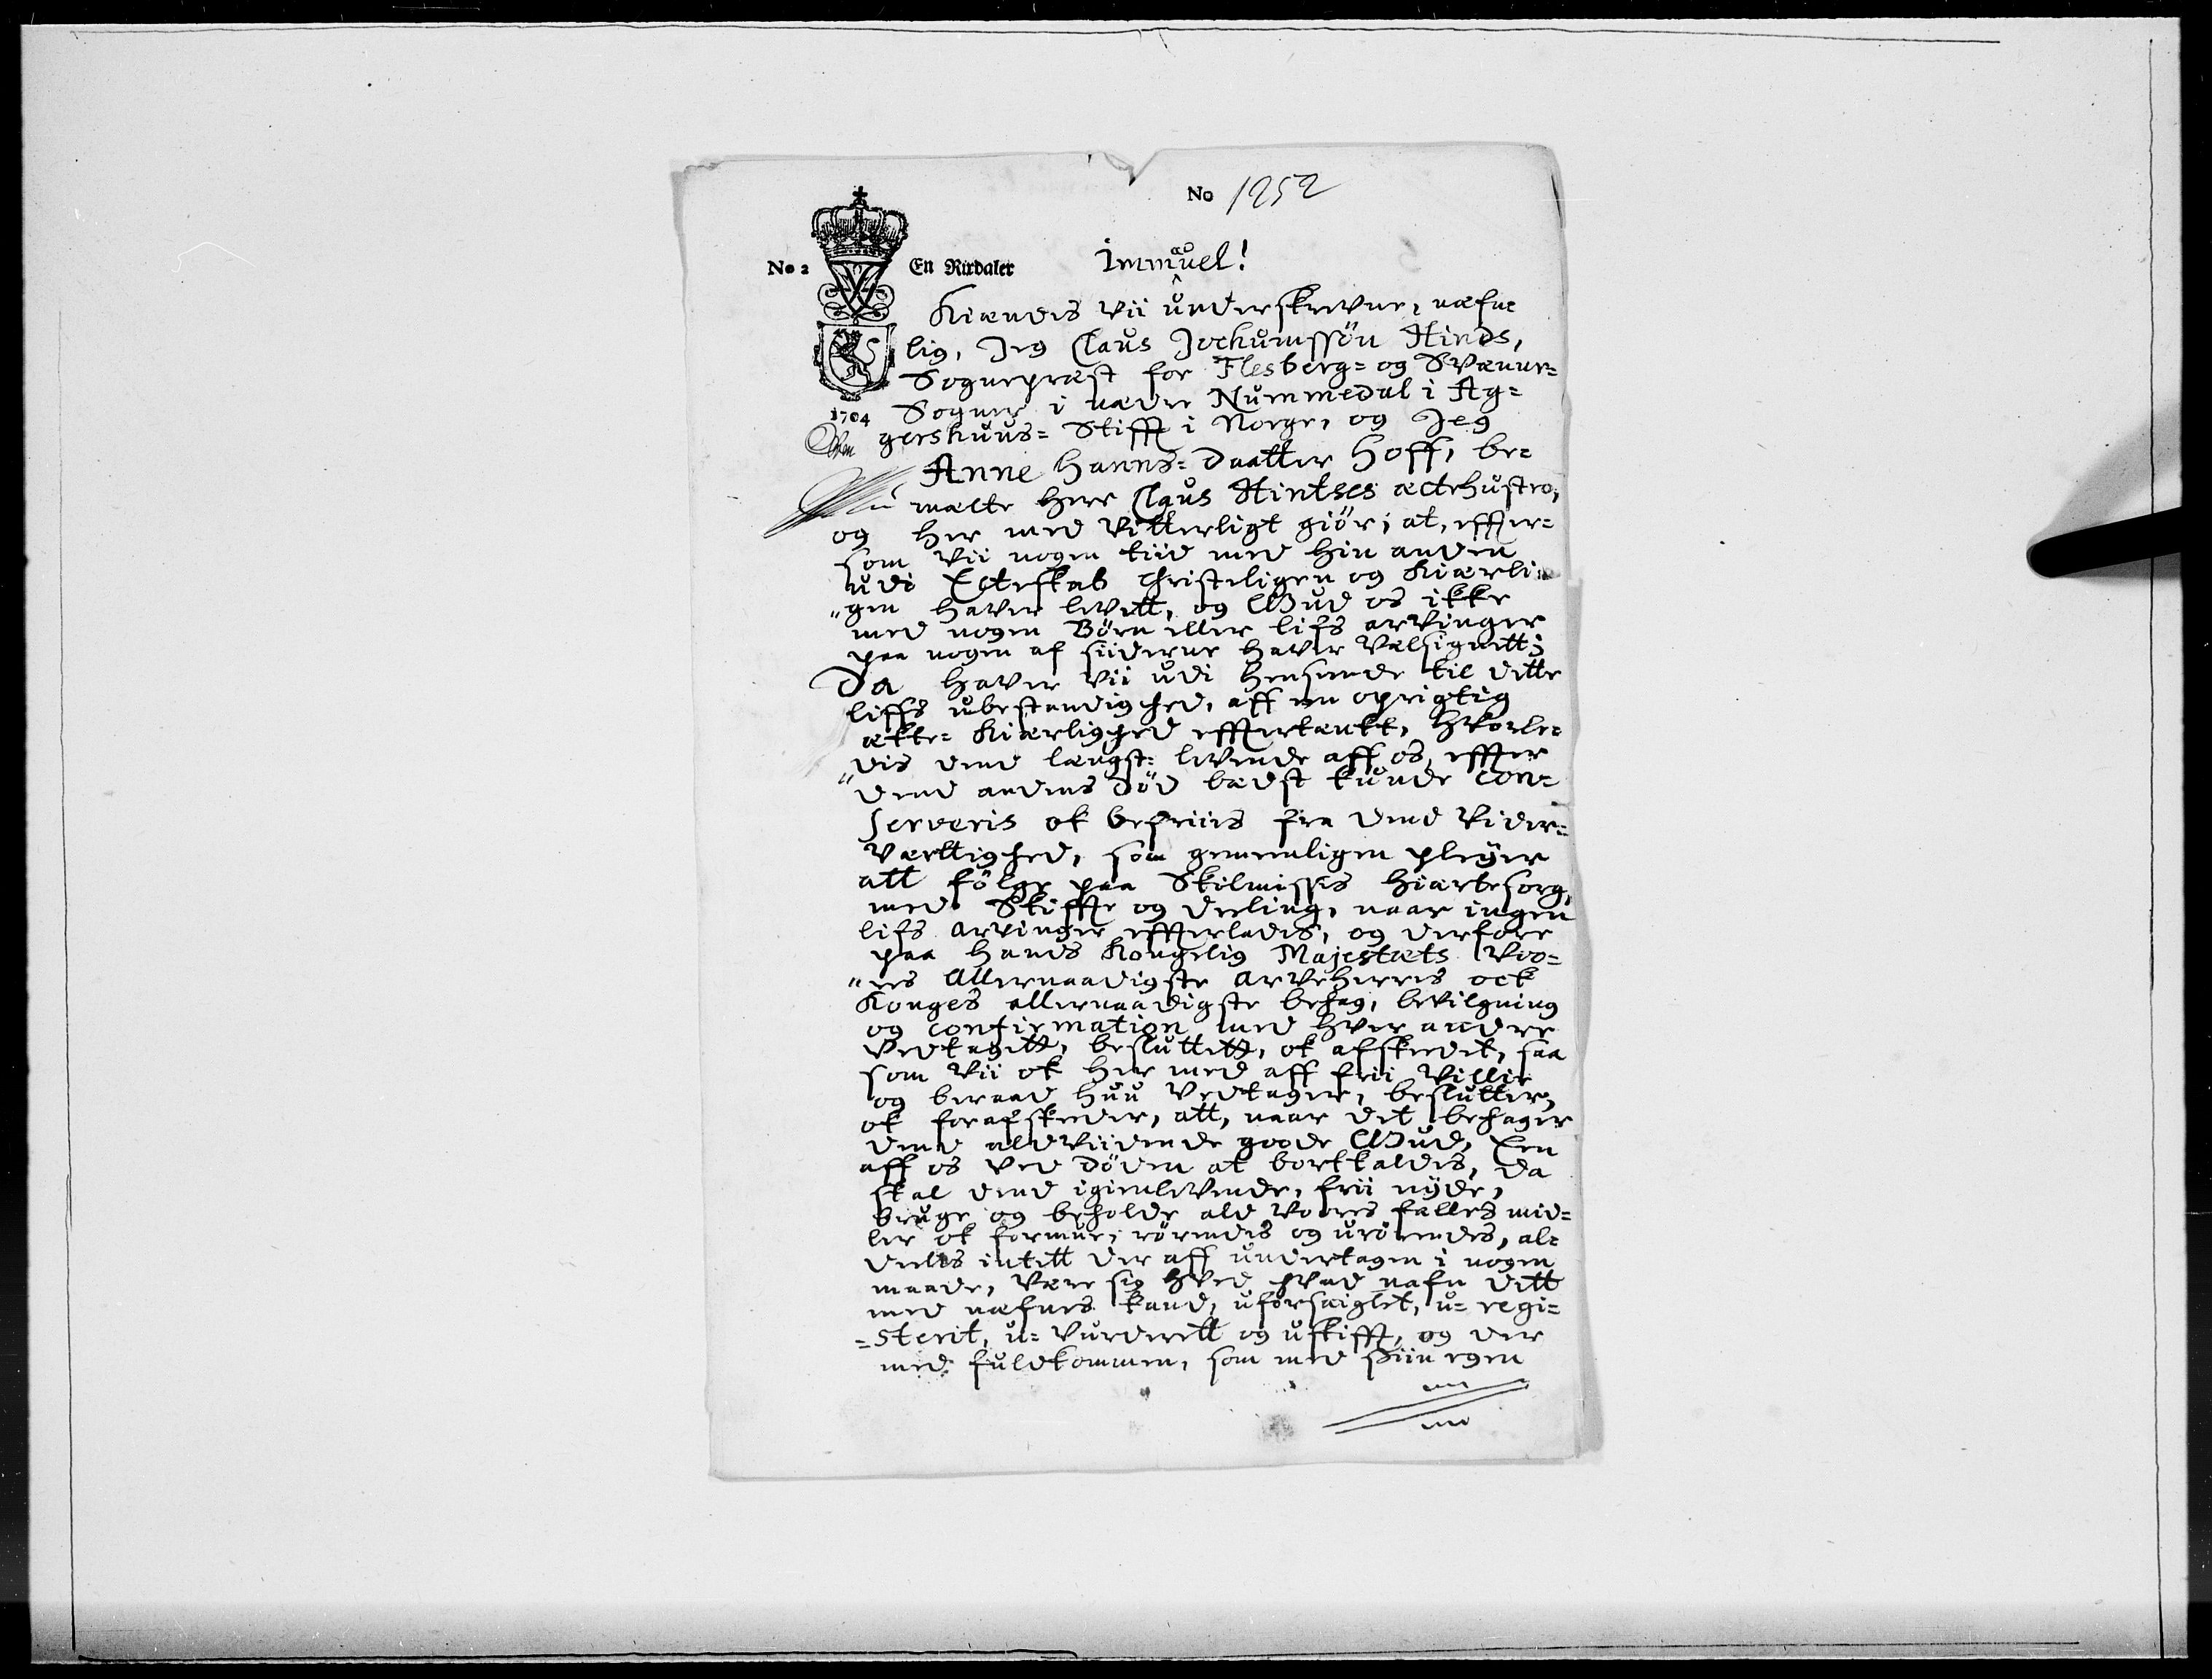 No 1252
No 2 En Rixdaler Immanuel!
Kiændis vii underskrevne, næfne
lig, Jeg Claus Jochumssön Hinds,
Sognepræst for Flesberg= og Svænne=
Sogner i nædre Nummedal i Ag=
1704
gershuus= Stifft i Norge, og Jeg
Anne Hanns= Daatter Hoff, be=
mælte Herr Claus Hintses ectehustro,
og her med vitterligt giör; at, effter=
som vii nogen tiid med hin anden
udi Ecteskab christeligen og Kiærli=
"gen haver levett, og Gud os ikke
med nogen Börn eller lifs arvinger
paa nogen af siiderne haver velsignett;
Da haver vii udi henseende til dette
liffs ubestandighed, aff een oprigtig
ække= Kiærlighed efftertænkt, hvorle=
"dis dend længst= levende aff os, effter
dend andens Död bædst kunde con=
serveris ok befriies fra dend vider=
værttighed, som gemeenligen pleÿer
att fölge paa Skilmisses hiærtesorg,
med Skiffte og deeling, naar ingen
lifs arvinger effterladis, og derfore
paa Hands Kongelig Majestæts voo=
"res Allernaadigste Arveherris ock
Konges allernaadigste behag, bevilgning
og confirmation med hver andre
vedtagitt, besluttett, ok afskedit, saa
som vii ok her med aff frii villie
og beraad huu vedtager, beslutter,
ok forafskeder, att, naar det behager
dend aldviidende goode Gud, Een
aff os ved döden at bortkaldis, da
skal dend igienlevende, frii nÿde,
bruge og beholde ald voores fælles mid=
ler ok formue, rörendis og urörendes, al=
deelis intett der aff undertagen i nogen
maade, være sig hved hvad nafn dett
med næfnes kand, uforsæiglet, u= regi=
=sterit, u= vurderett og uskifft, og der
med fuldkommen, som med siin egen